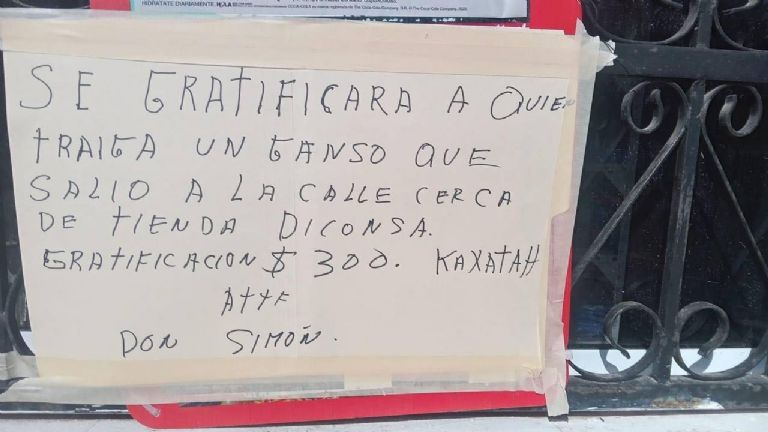 HIDRATATE DIARIAMENTE
SE GRATIFICARA A QUIEN
TRAIGA UN GANSO QUE
SALIO A LA CALLE CERCA
DE TIENDA DICONSA.
GRATIFICACION $ 300. KAXATAH
ATTE
DON SIMON.